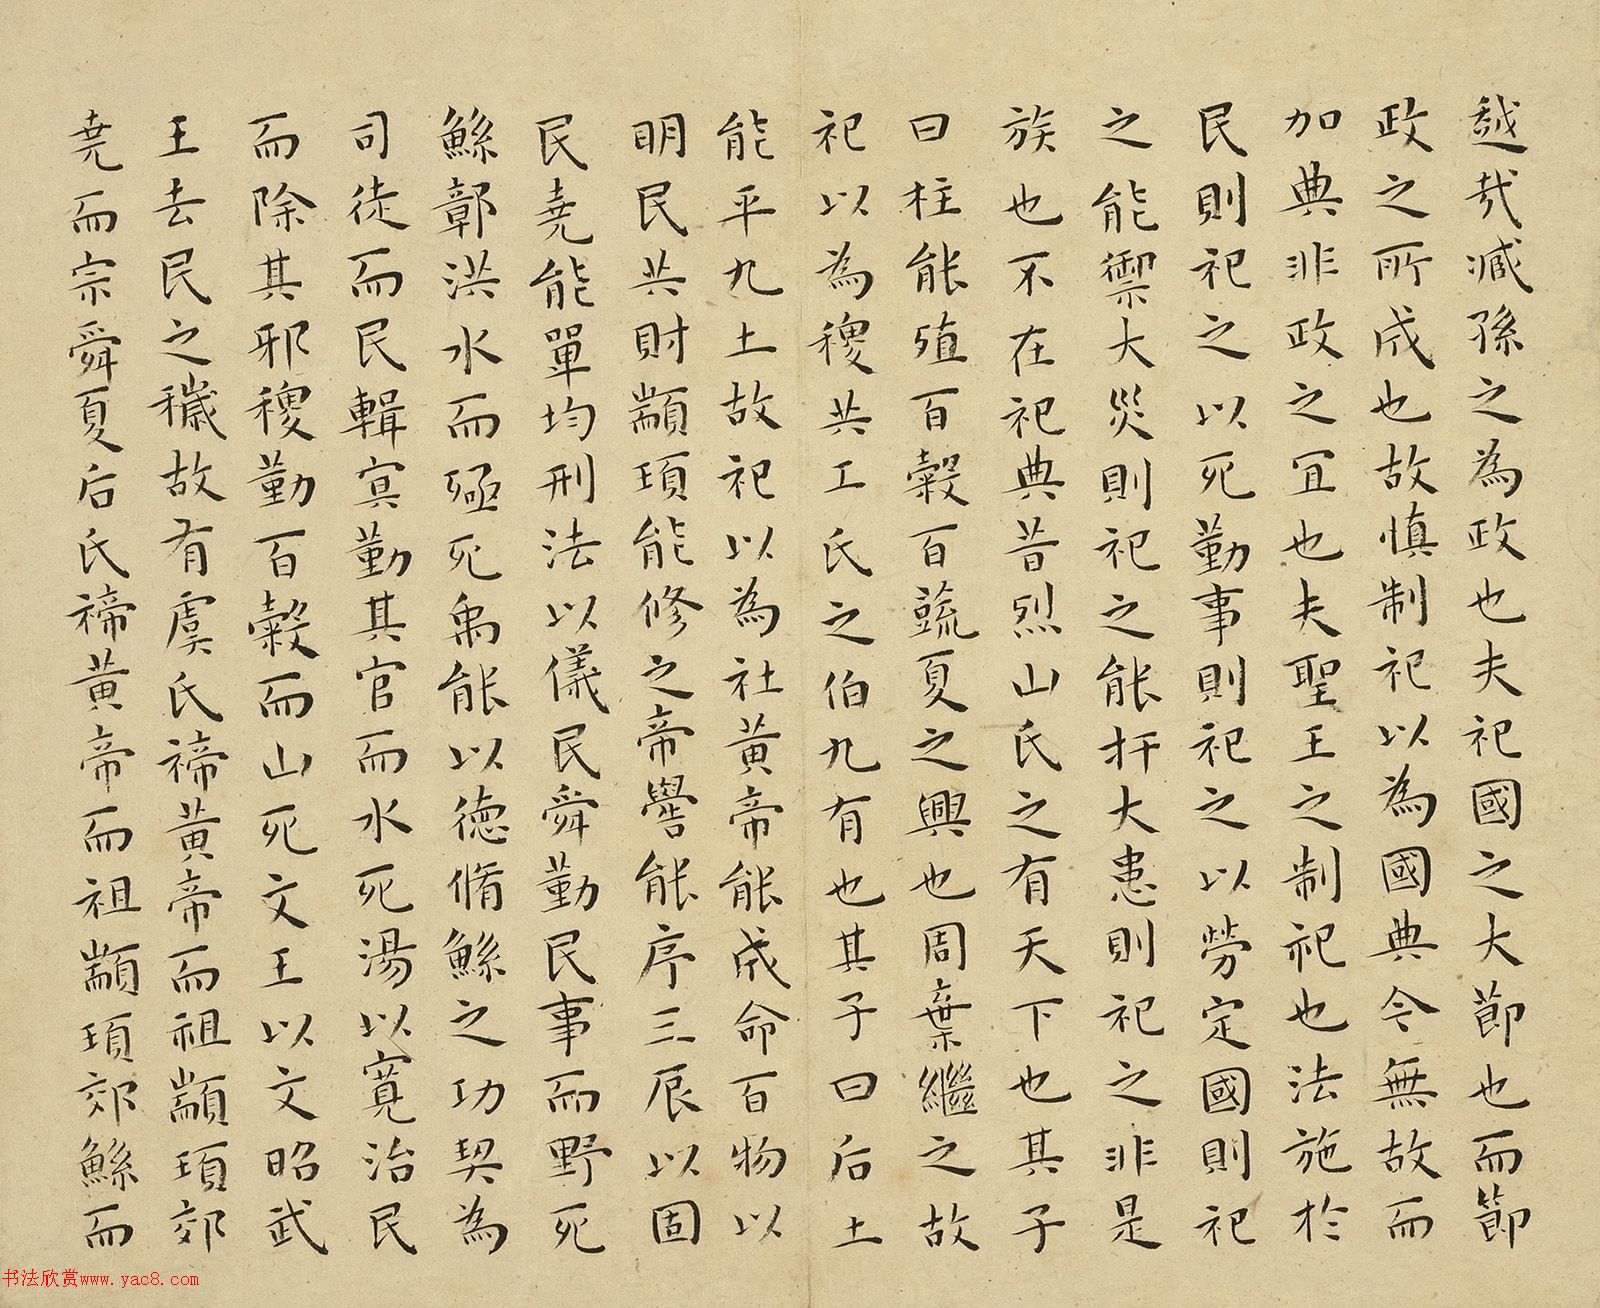 越哉臧孫之為政也夫祀國之大節也而節
政之所成也故慎制祀以為國典今無故而
加典非政之宜也夫聖王之制祀也法施於
民則祀之以死勤事則祀之以勞定國則祀
之能禦大災則祀之能扞大患則祀之非是
族也不在祀典昔烈山氏之有天下也其子
曰柱能殖百穀百蔬夏之興也周棄繼之故
祀以為稷共工氏之伯九有也其子曰后土
能平九土故祀以為社黃帝能成命百物以
明民共財顓頊能修之帝嚳能序三辰以固
民堯能單均刑法以儀民舜勤民事而野死
鯀鄣洪水而殛死禹能以德脩鯀之功契為
司徒而民輯冥勤其官而水死湯以寬治民
而除其邪稷勤百穀而山死文王以文昭武
王去民之穢故有虞氏禘黃帝而祖顓頊郊
堯而宗舜夏后氏禘黃帝而祖顓頊郊鯀而
书法欣赏www.yac8.com